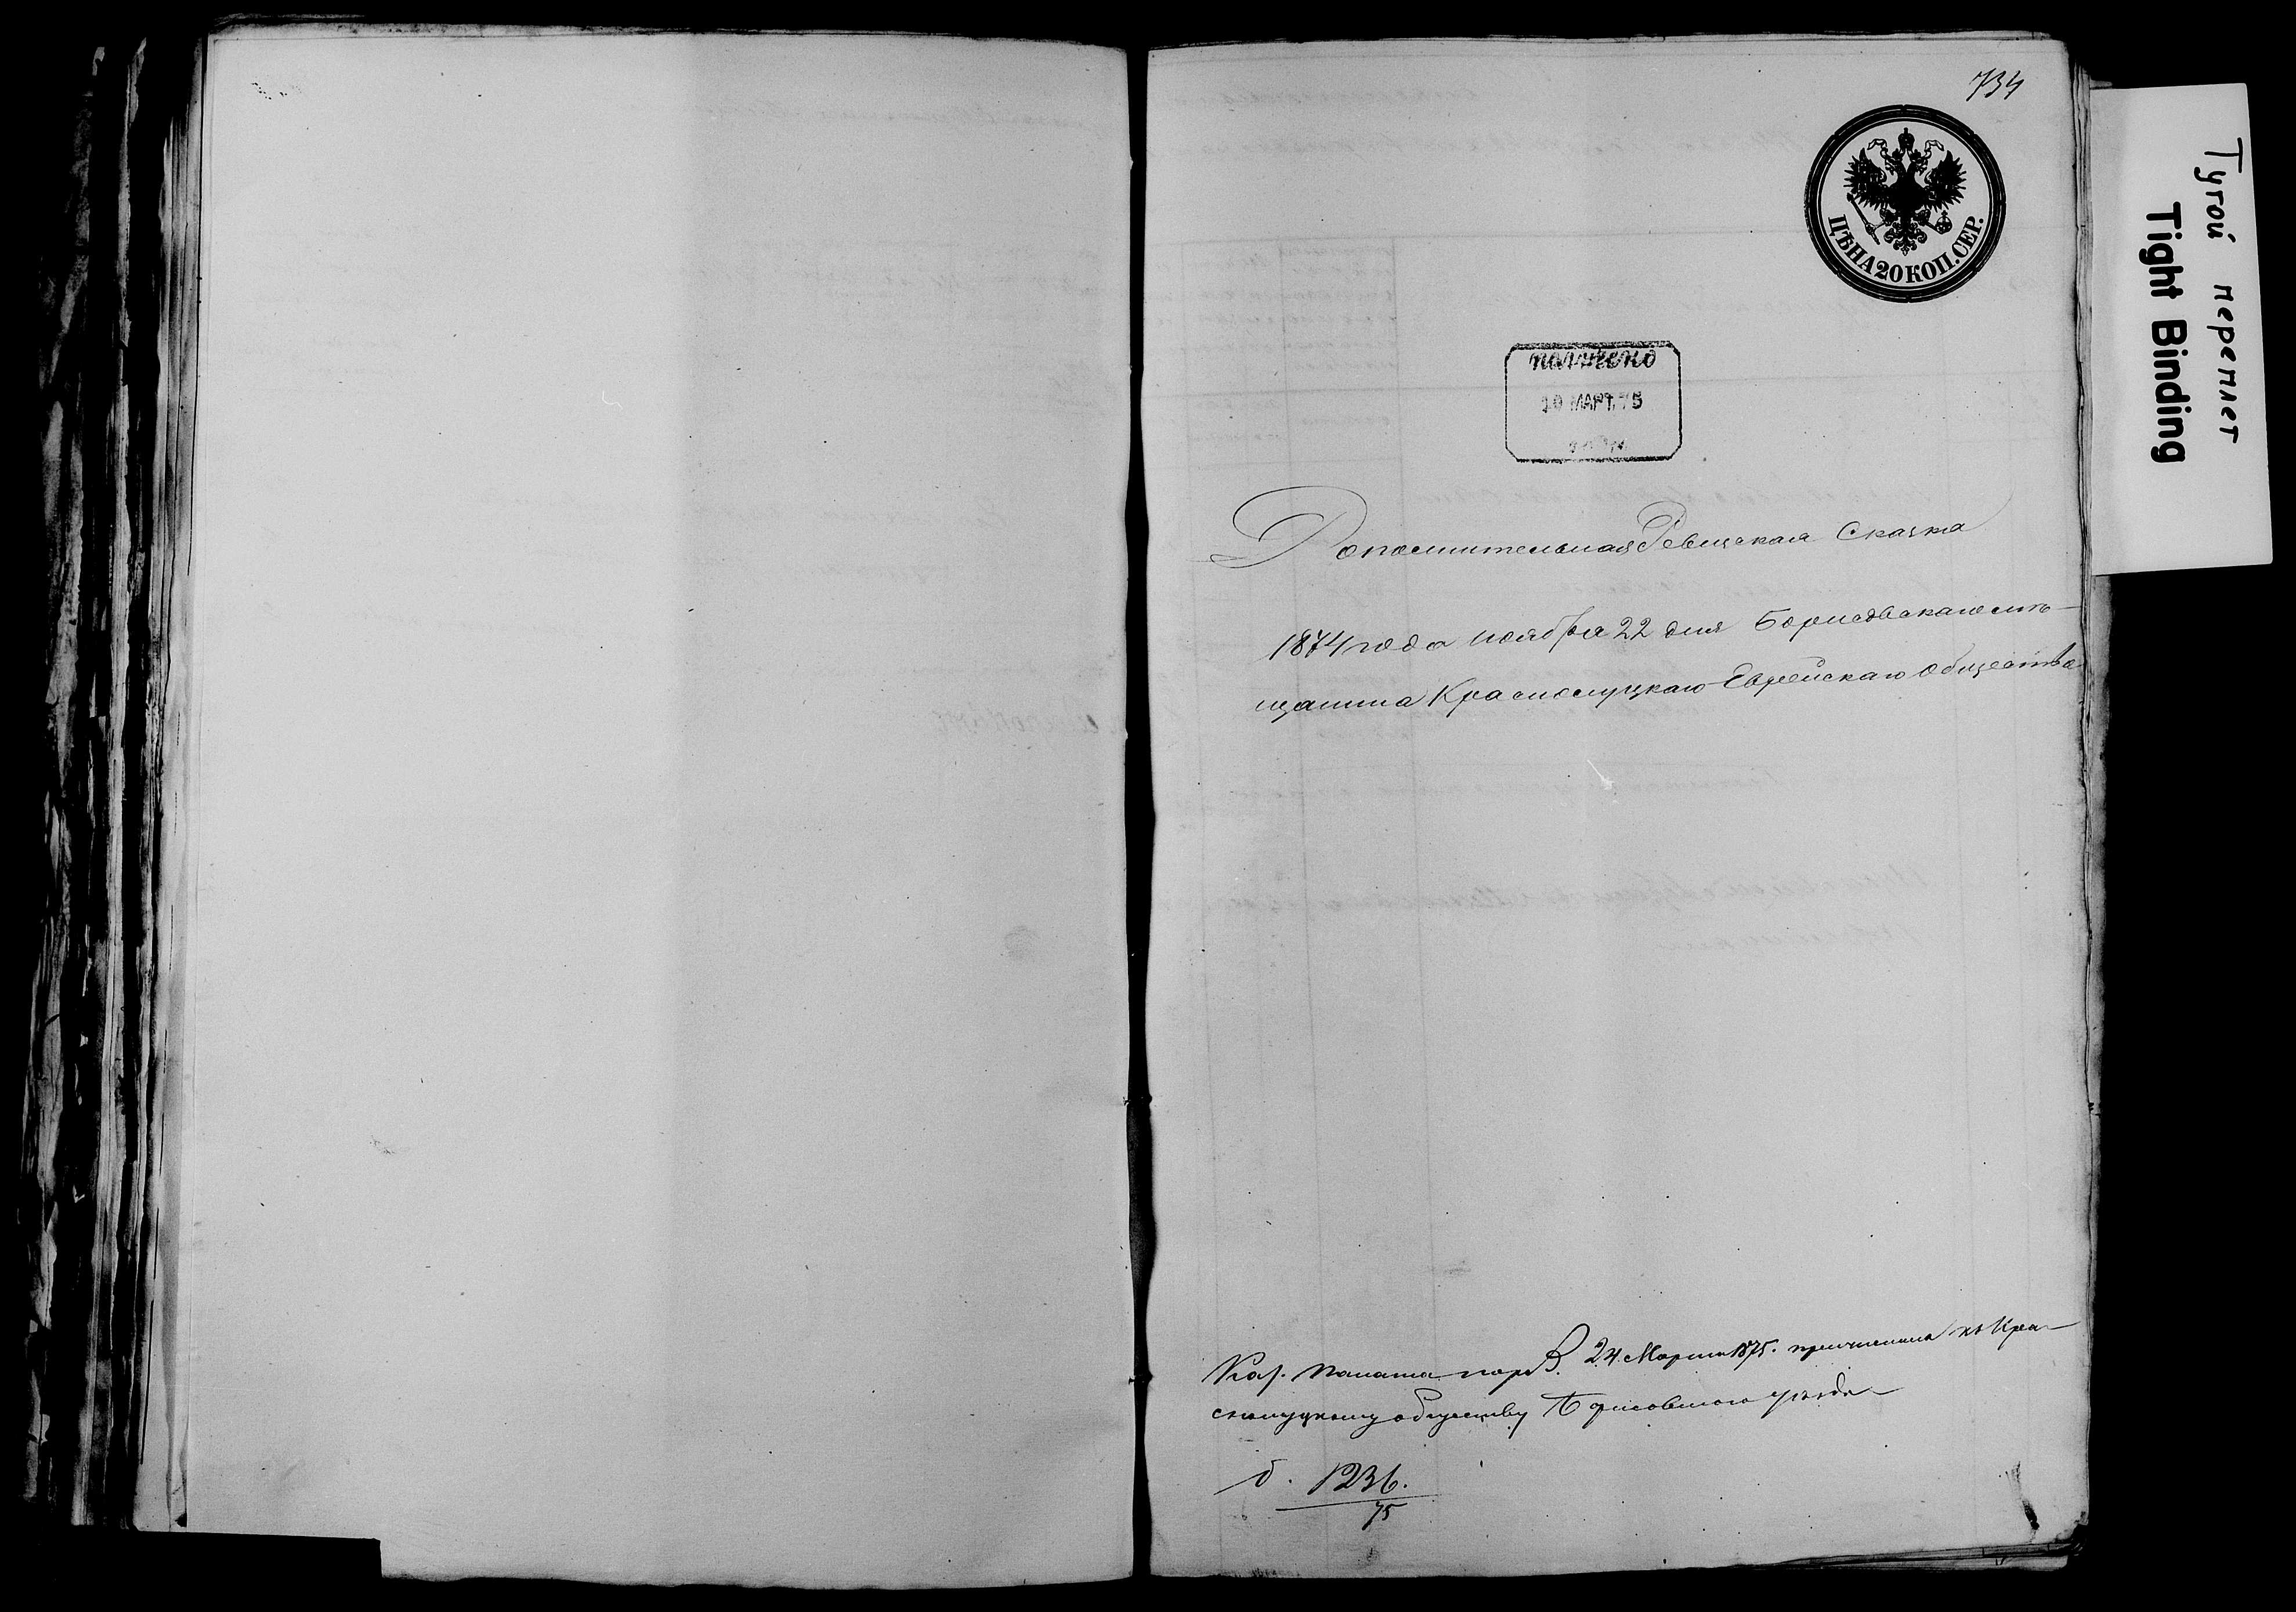 734
ЦѢНА 20 КОП. СЕР.
получено
10 МАРТ. 75
Дополнительная Ревизская Сказка
1874 года ноября 22 дня Борисовскаго мѣ-
щанина Краснолуцкаго Еврейскаго общества
Каз. Палата 24 Марта 1875. причислила къ Кра-
снолуцкому обществу Борисовскаго уѣзда
д. 1236.
75
Тугой переплет
Tight Binding